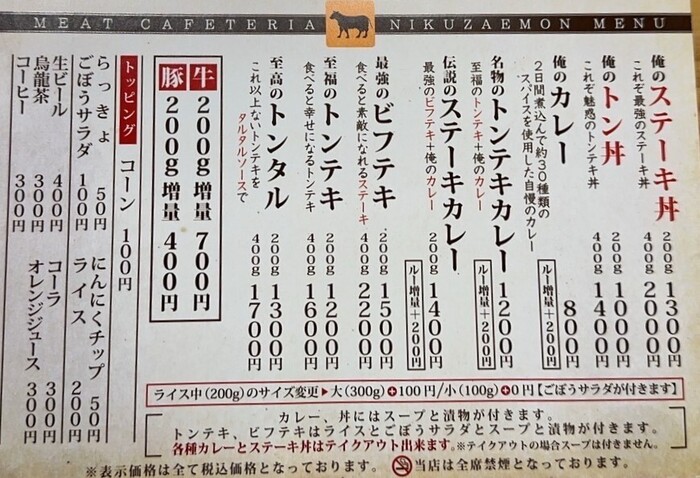 MEAT CAFETERIA NIKUZAEMON MENU
俺のステーキ丼
これぞ最強のステーキ丼
200g 1300円
400g 2000円
俺のトン丼
これぞ魅惑のトンテキ丼
200g 1000円
400g 1400円
俺のカレー
2日間煮込んで約30種類の
スパイスを使用した自慢のカレー
800円
ルー増量+200円
名物のトンテキカレー
至福のトンテキ+俺のカレー
1200円
ルー増量+200円
伝説のステーキカレー
最強のビフテキ+俺のカレー
200g 1400円
ルー増量+200円
最強のビフテキ
食べると素敵になれるステーキ
200g 1500円
400g 2200円
至福のトンテキ
食べると幸せになるトンテキ
200g 1200円
400g 1600円
至高のトンタル
これ以上ないトンテキを
タルタルソースで
200g 1300円
400g 1700円
牛 200g増量 700円
豚 200g増量 400円
トッピング
コーン 100円
らっきょ 50円
にんにくチップ 50円
ごぼうサラダ 100円
ライス 200円
生ビール 400円
コーラ 300円
烏龍茶 300円
オレンジジュース 300円
コーヒー 300円
ライス中(200g)のサイズ変更▶大(300g)+100円/小(100g)+0円【ごぼうサラダが付きます】
カレー、丼にはスープと漬物が付きます。
トンテキ、ビフテキはライスとごぼうサラダとスープと漬物が付きます。
各種カレーとステーキ丼はテイクアウト出来ます。※テイクアウトの場合スープは付きません。
※表示価格は全て税込価格となっております。 当店は全席禁煙となっております。